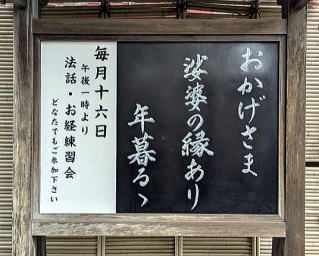 おかげさま
娑婆の縁あり
年暮るゝ
毎月十六日
午後一時より
法話・お経練習会
どなたでもご参加下さい